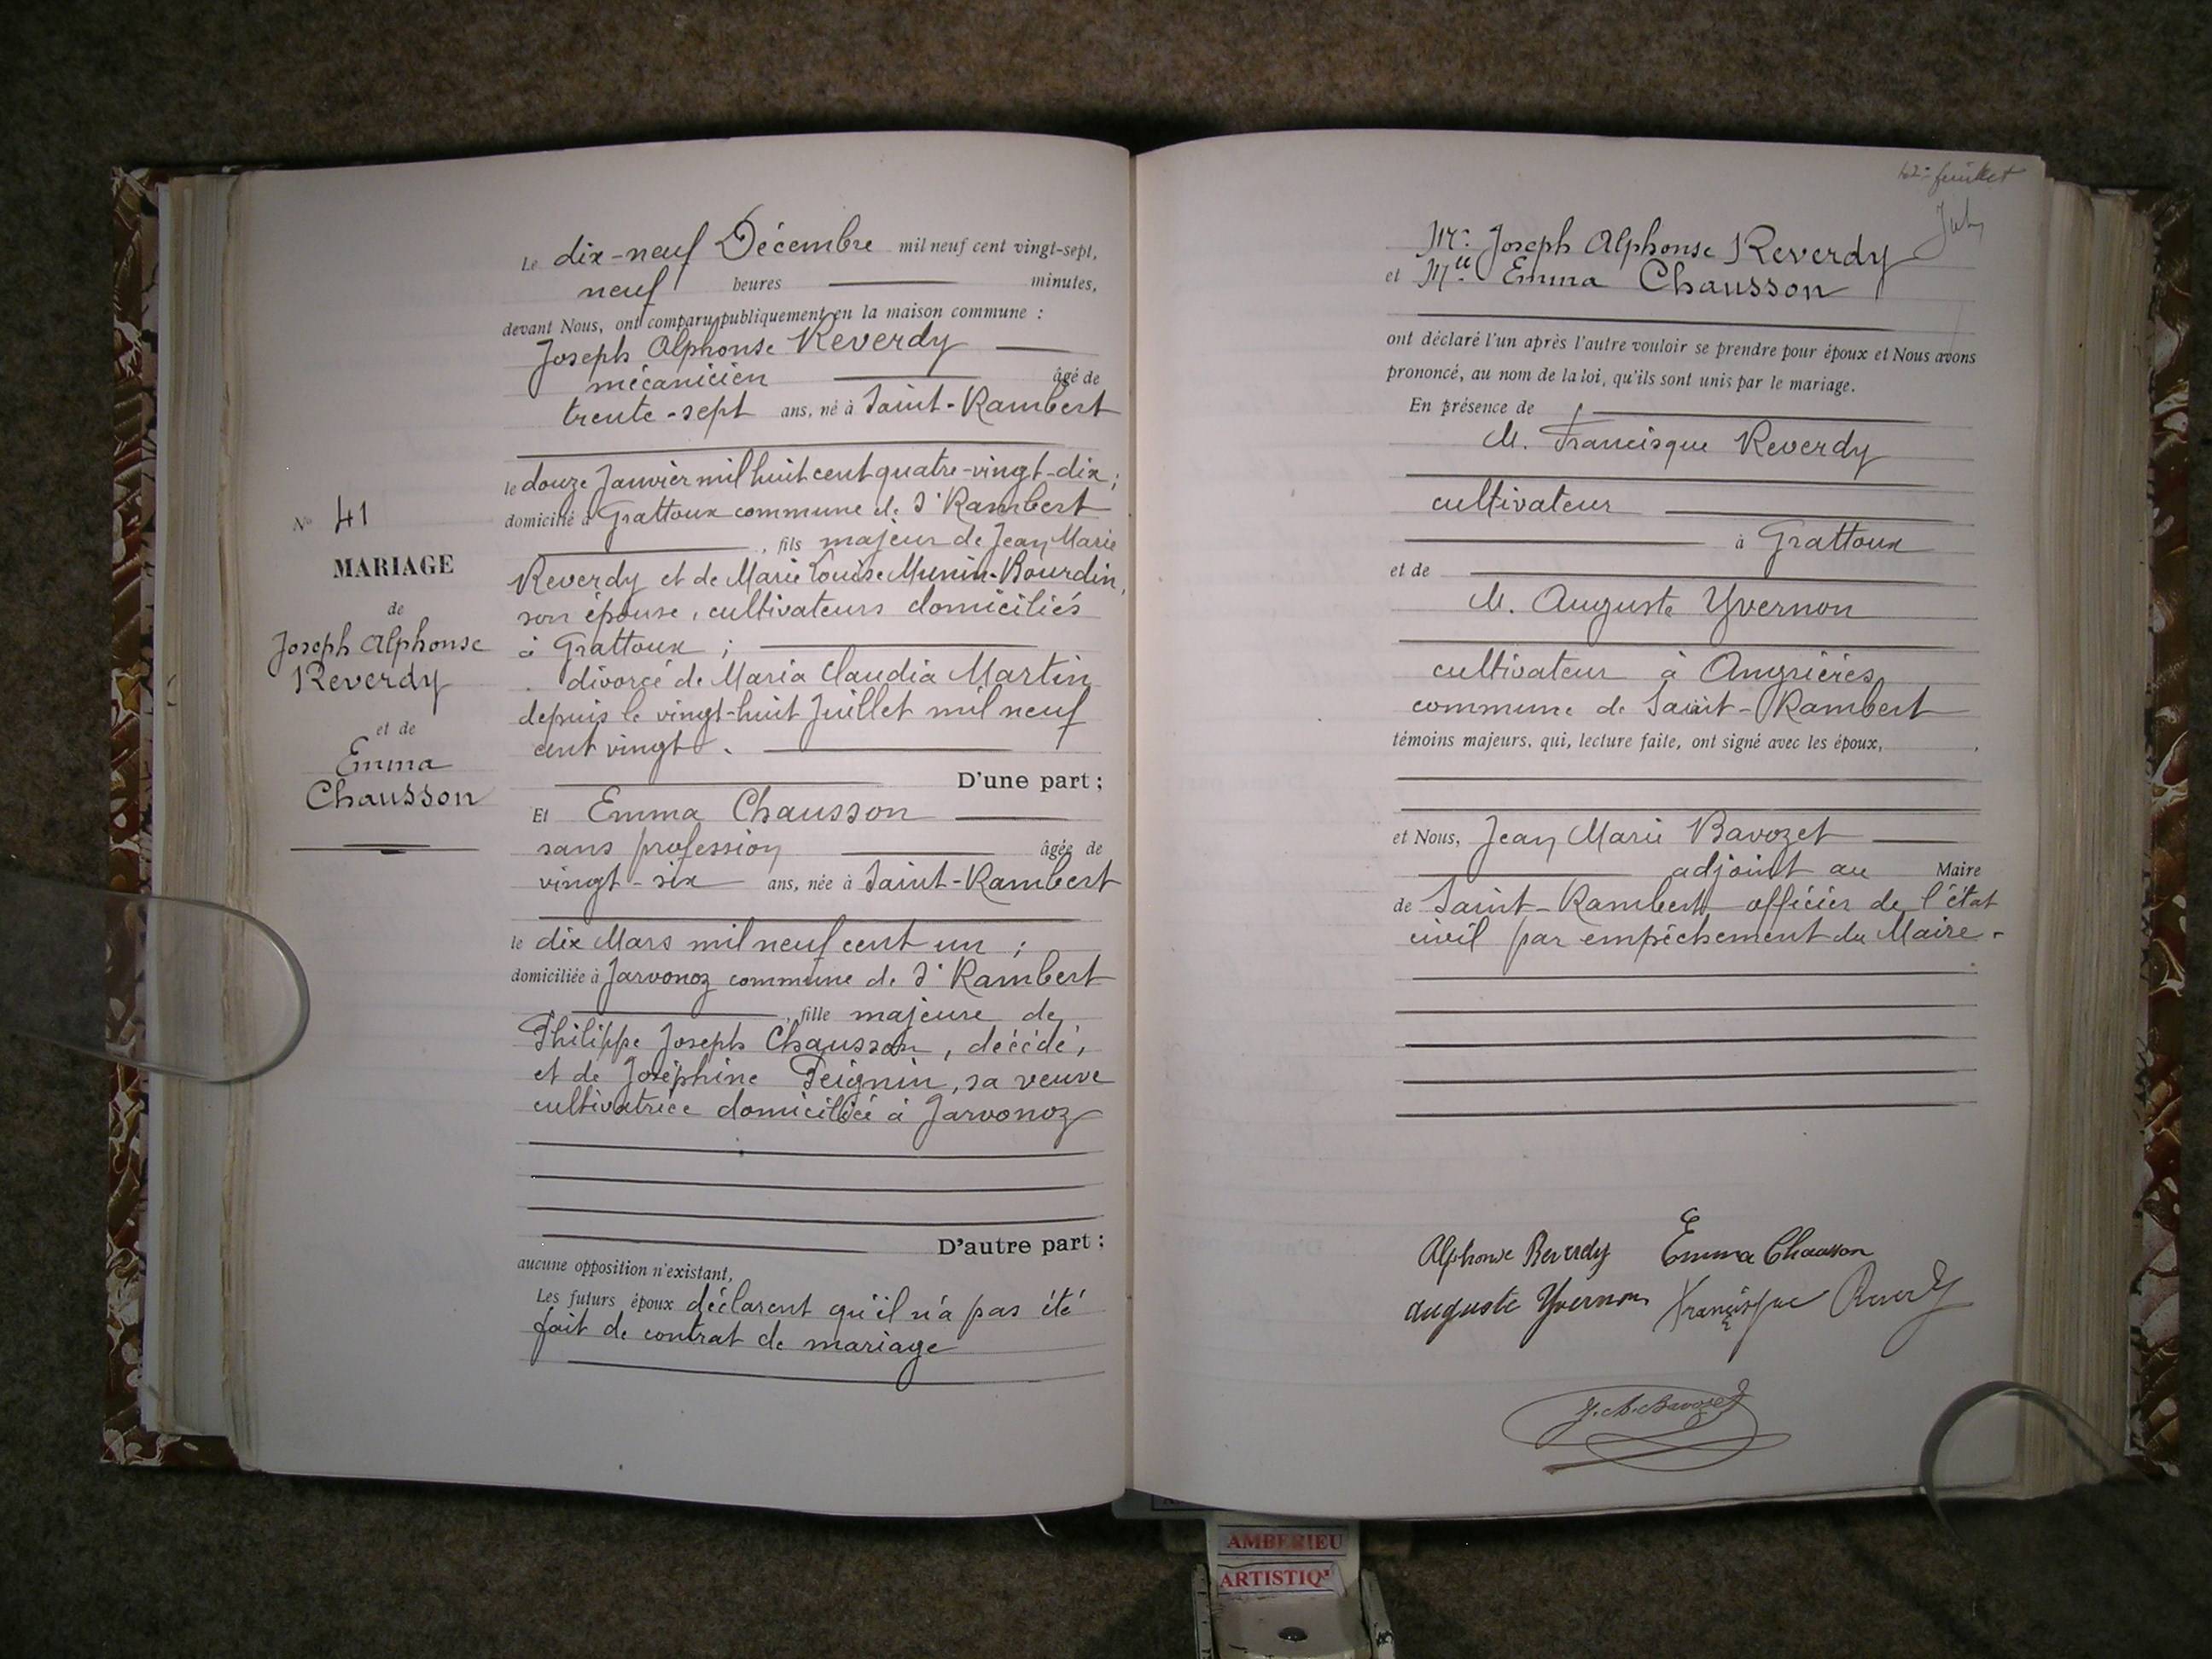 N° 41
MARIAGE
de
Joseph Alphonse
Reverdy
et de
Emma
Chausson
Le dix-neuf Décembre mil neuf cent vingt-sept,
neuf heures minutes,
devant Nous, ont comparu publiquement en la maison commune :
Joseph Alphonse Reverdy
mécanicien âgé de
trente-sept ans, né à Saint-Rambert
le douze Janvier mil huit cent quatre-vingt-dix ;
domicilié à Grattoux commune de St Rambert
, fils majeur de Jean Marie
Reverdy et de Marie Louise Munin-Bourdin,
son épouse, cultivateurs domiciliés
à Grattoux ;
divorcé de Maria Claudia Martin
depuis le vingt-huit Juillet mil neuf
cent vingt.
D'une part ;
Et Emma Chausson
sans profession âgée de
vingt-six ans, née à Saint-Rambert
le dix Mars mil neuf cent un ;
domiciliée à Javornoz commune de St Rambert
, fille majeure de
Philippe Joseph Chausson, décédé,
et de Joséphine Peignin, sa veuve
cultivatrice domiciliée à Javornoz
D'autre part ;
aucune opposition n'existant,
Les futurs époux déclarent qu'il n'a pas été
fait de contrat de mariage
42e feuillet
Mr Joseph Alphonse Reverdy
et Mlle Emma Chausson
ont déclaré l'un après l'autre vouloir se prendre pour époux et Nous avons
prononcé, au nom de la loi, qu'ils sont unis par le mariage.
En présence de
M. Francisque Reverdy
cultivateur
à Grattoux
et de
M. Auguste Yvernon
cultivateur à Angrières
commune de Saint-Rambert
témoins majeurs, qui, lecture faite, ont signé avec les époux,
et Nous, Jean Marie Bavozet
adjoint au Maire
de Saint-Rambert officier de l'état
civil par empêchement du Maire.
Alphonse Reverdy Emma Chausson
Auguste Yvernon Francisque Reverdy
J. M. Bavozet
AMBERIEU
ARTISTIQ